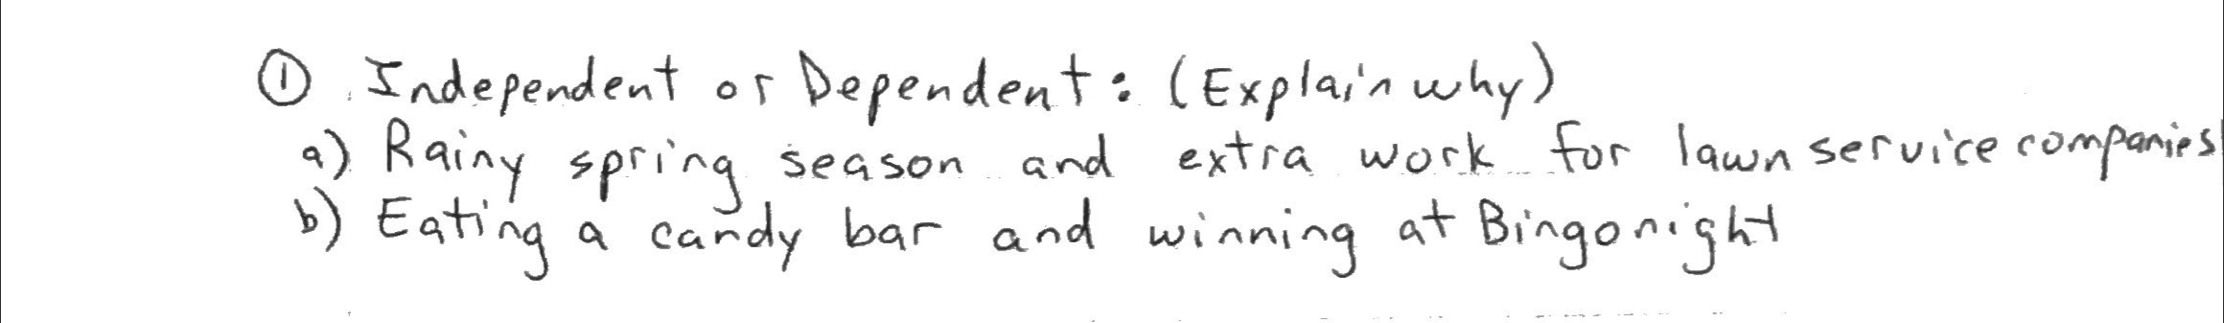 ① Independent or Dependent: (Explain why)
a) Rainy spring season and extra work for lawn service companies
b) Eating a candy bar and winning at Bingo night